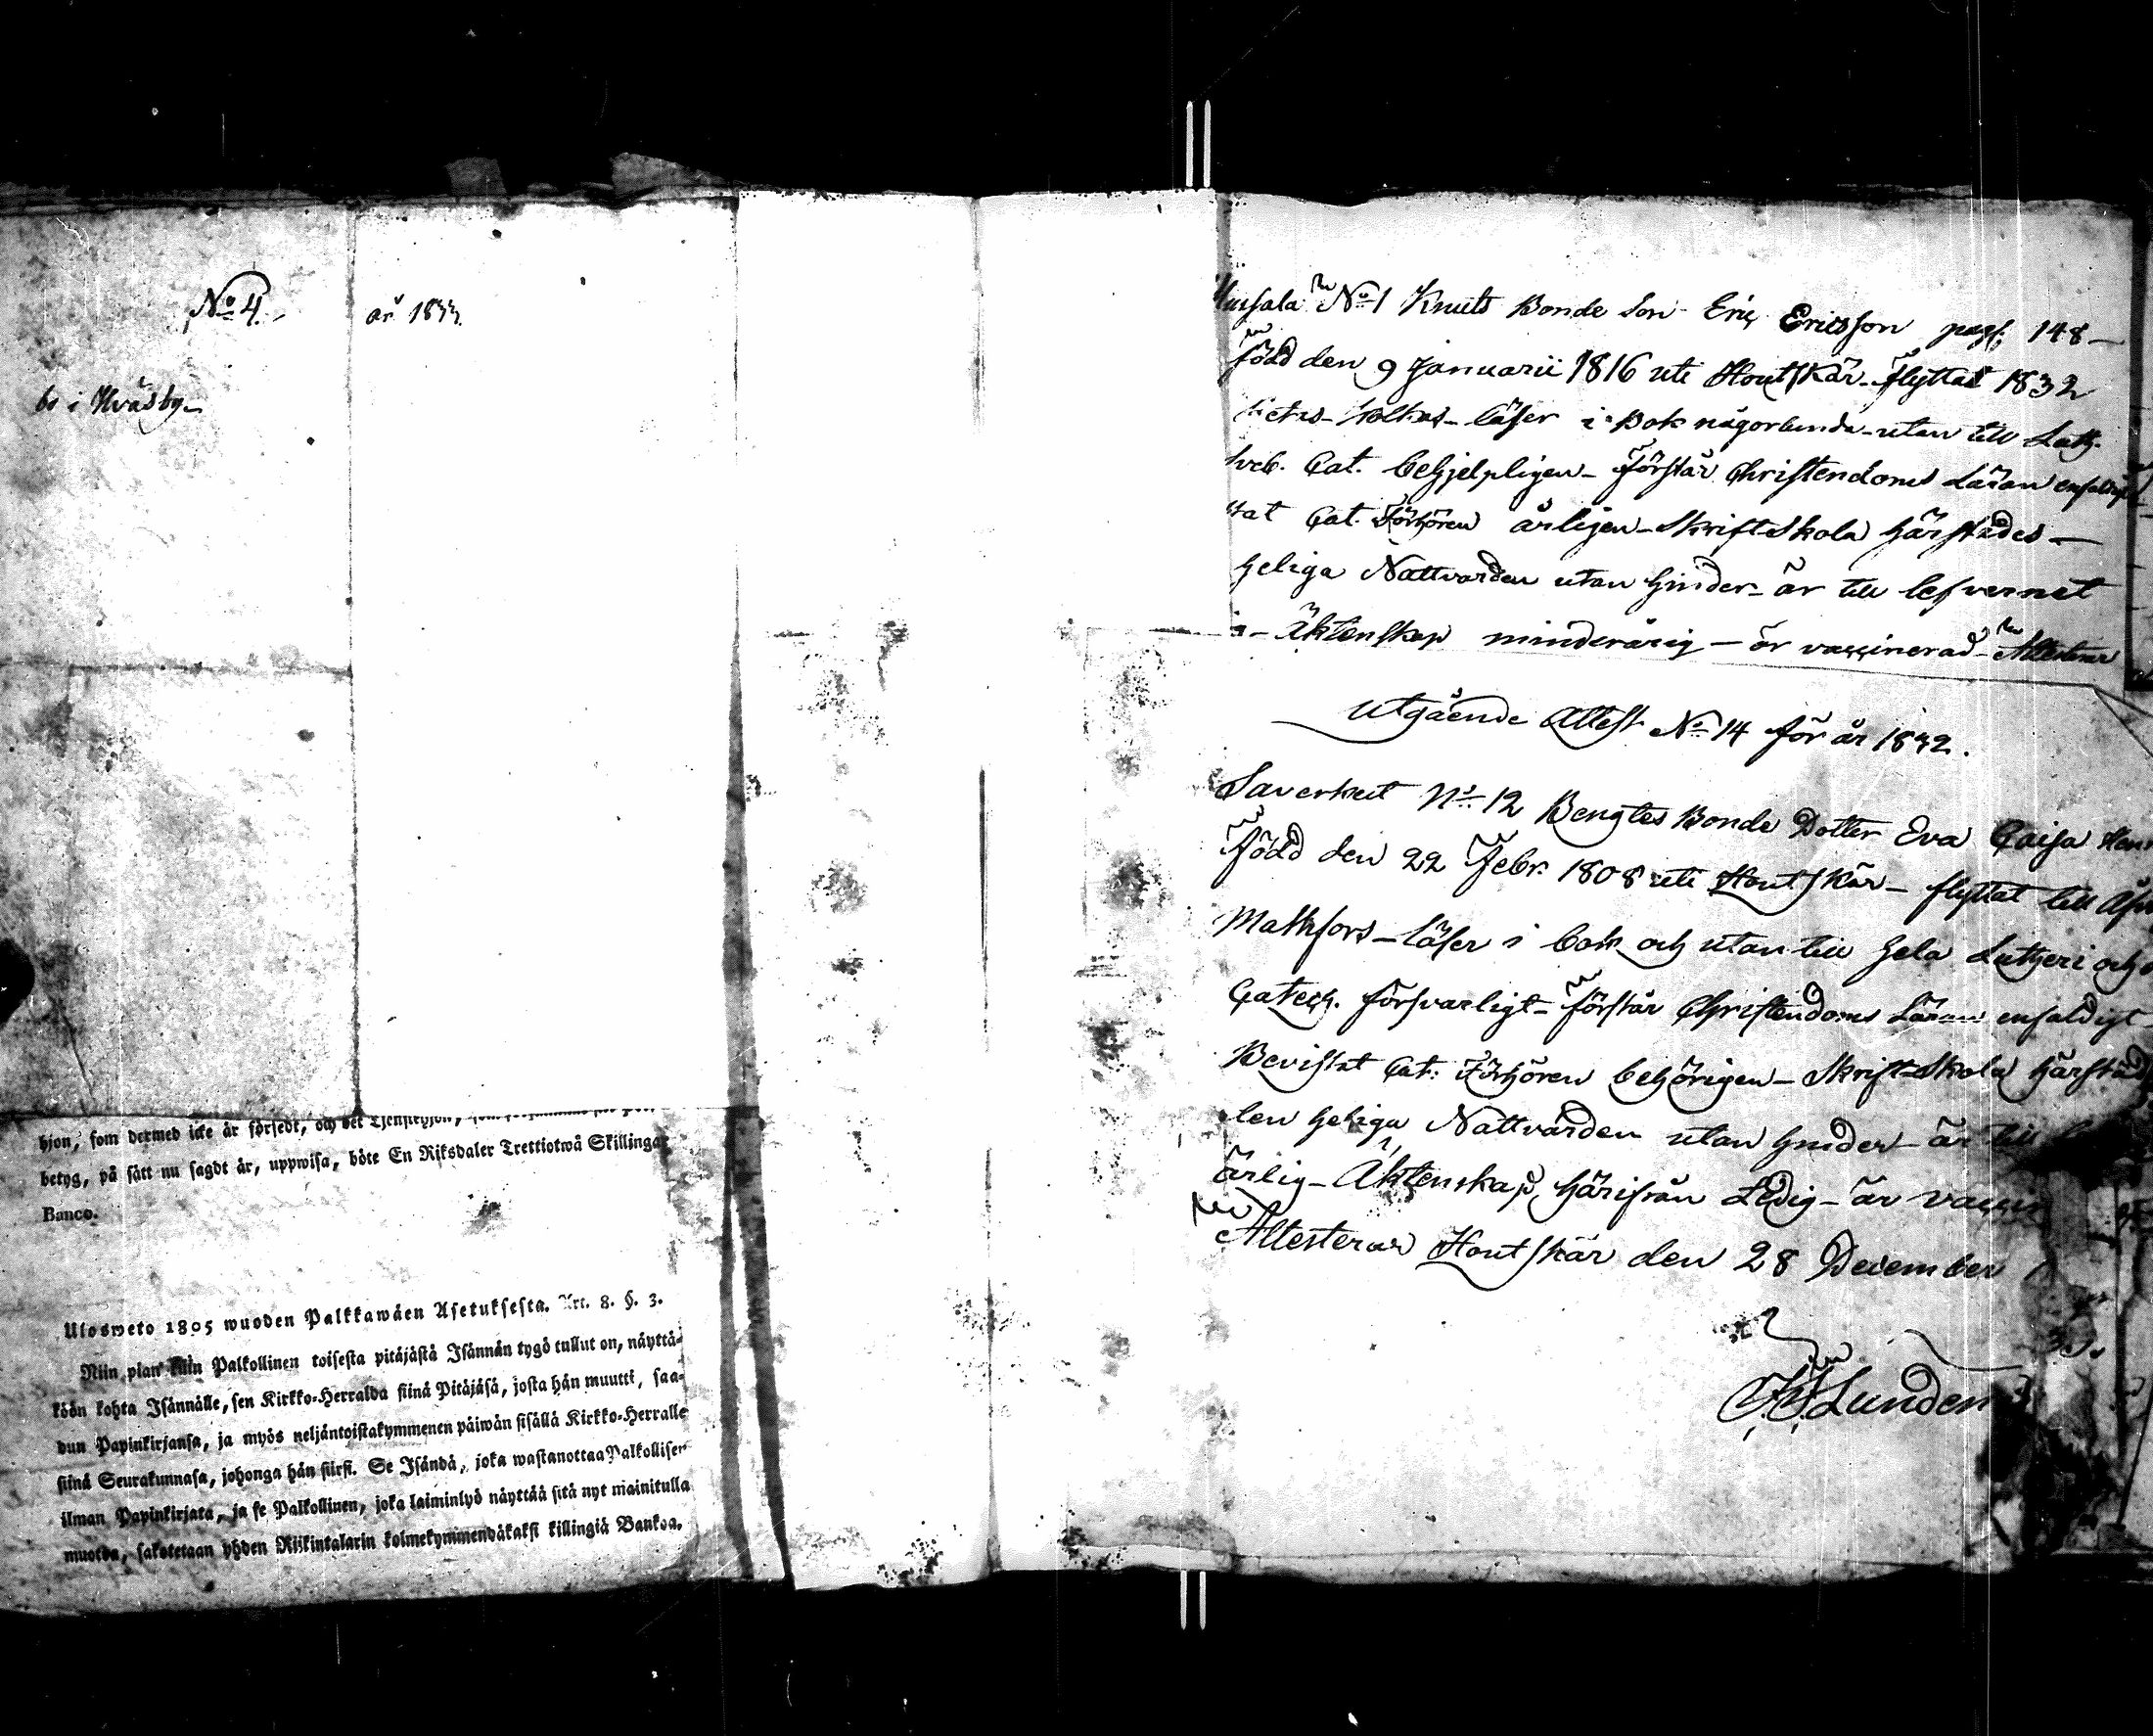 No 4.
år 1833.
bs i Hväsby_
hjon, som dermed icke är försedt, och det Tjenstehjon,
betyg, på sätt nu sagdt är, uppwisa, böte En Riksdaler Trettiotwå Skillingar
Banco.
Ulosweto 1805 wuoden Palkkawäen Asetuksesta. Art. 8. §. 3.
Niin pian kuin Palkollinen toisesta pitäjästä Isännän tygö tullut on, näyttä-
köön kohta Isännälle, sen Kirkko-Herralda siinä Pitäjäsä, josta hän muutti, saa-
dun Papinkirjansa, ja myös neljäntoistakymmenen päiwän sisällä Kirkko-Herralle
siinä Seurakunnasa, johonga hän siirsi. Se Isändä, joka wastanottaa Palkollisen
ilman Papinkirjata, ja se Palkollinen, joka laiminlyö näyttää sitä nyt mainitulla
muotoa, sakotetaan yhden Riikintalarin kolmekymmendäkaksi killingiä Bankoa.
No 1 Knuts Bonde Son Eric Ericsson pag. 148_
född den 9 Januarii 1816 uti Houtskär_ flyttat 1832
läser i Bok någorlunda_ utan till Luth.
Sveb. Cat. behjelpligen_ förstår Christendoms Läran enfaldigt
Cat. Förhören årligen_ Skrift Skola härstädes_
heliga Nattvarden utan hinder_ är till lefvernet
Äktenskap minderårig_ är vaccinerad_ Attesterar
Utgående Attest No 14 för år 1832.
Saverkeit No 12 Bengtes Bonde Dotter Eva Caisa
född den 22 Febr. 1808 uti Houtskär_ flyttat till
Mathfors_ läser i bok och utan till hela Lutheri och
Catech. försvarligt_ förstår Christendoms Läran enfaldigt
Bevistat Cat: Förhören behörigen_ Skrift-Skola härstäd
den heliga Nattvarden utan hinder_ är till
ärlig_ Äktenskap härifrån Ledig_ är vaccin
Attesterar Houtskär den 28 December
Lunden